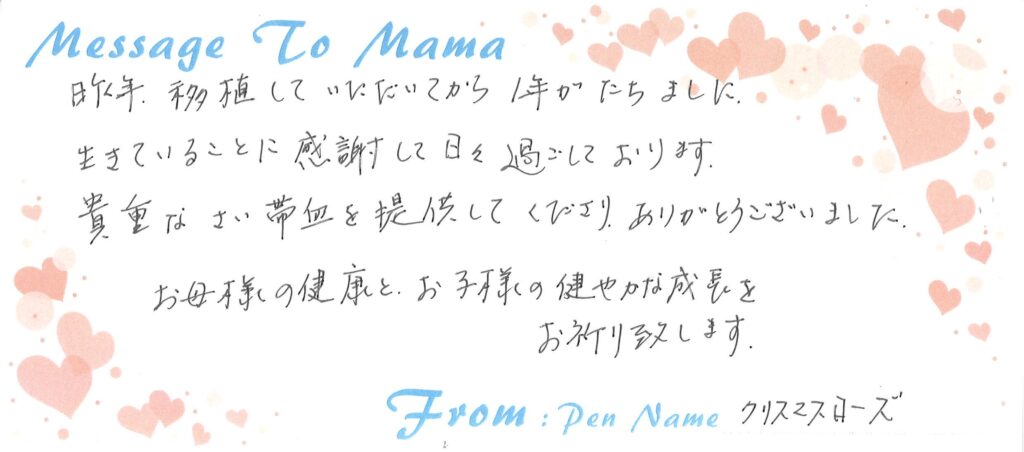 Message To Mama
昨年、移植していただいてから 1年がたちました。
生きていることに感謝して日々過ごしております。
貴重なさい帯血を提供してくださり、ありがとうございました。
お母様の健康と、お子様の健やかな成長を
お祈り致します。
From : Pen Name クリスマスローズ